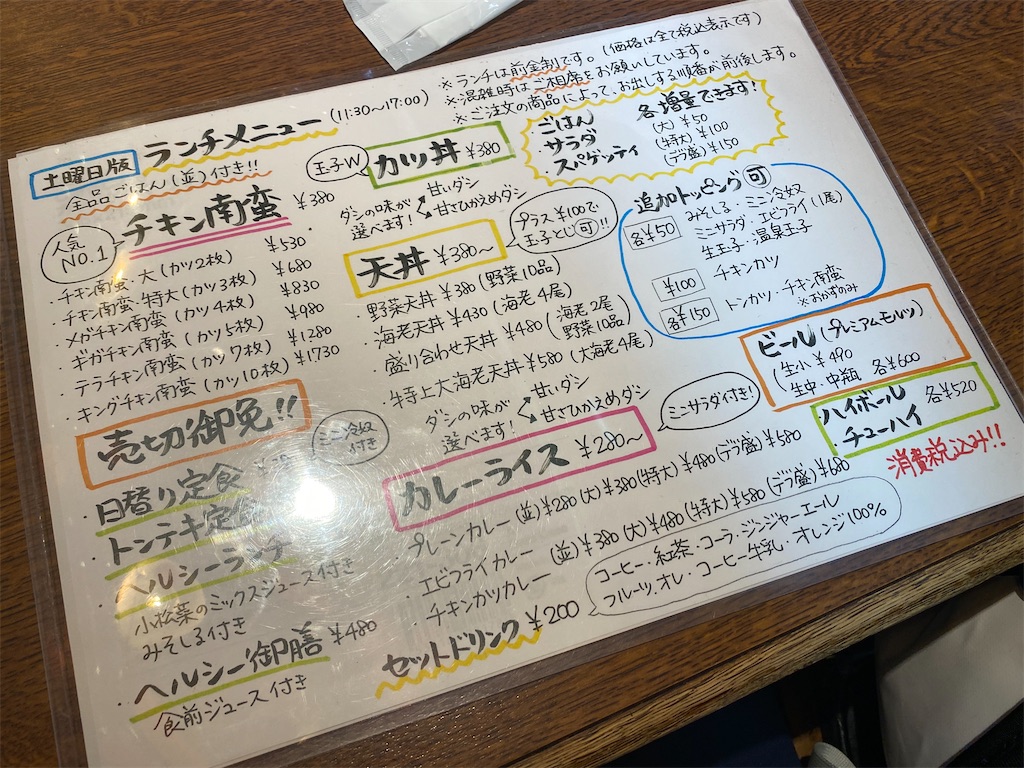 土曜日版 ランチメニュー (11:30〜17:00)
※ランチは前金制です。(価格は全て税込表示です)
※混雑時はご相席をお願いしています。
※ご注文の商品によって、お出しする順番が前後します。
全品ごはん(並)付き!!
人気No.1
チキン南蛮 ¥380
・チキン南蛮・大(カツ2枚) ¥530
・チキン南蛮・特大(カツ3枚) ¥680
・メガチキン南蛮(カツ4枚) ¥830
・ギガチキン南蛮(カツ5枚) ¥980
・テラチキン南蛮(カツ7枚) ¥1280
・キングチキン南蛮(カツ10枚) ¥1730
売切御免!!
・日替り定食
ミニ冷奴付き
・トンテキ定食
・ヘルシーランチ
小松菜のミックスジュース付き
みそしる付き
・ヘルシー御膳 ¥480
食前ジュース付き
玉子W
カツ丼 ¥380
ダシの味が選べます!
甘いダシ
甘さひかえめダシ
天丼 ¥380〜
プラス¥100で玉子とじ可!!
・野菜天丼 ¥380(野菜10品)
・海老天丼 ¥430(海老4尾)
・盛り合わせ天丼 ¥480(海老2尾 野菜10品)
・特上大海老天丼 ¥580(大海老4尾)
ダシの味が選べます!
甘いダシ
甘さひかえめダシ
カレーライス ¥280〜
ミニサラダ付き!
・プレーンカレー(並)¥280(大)¥380(特大)¥480(デラ盛)¥580
・エビフライカレー
・チキンカツカレー
(並)¥380(大)¥480(特大)¥580(デラ盛)¥680
セットドリンク ¥200
コーヒー・紅茶・コーラ・ジンジャーエール
フルーツ・オレ・コーヒー牛乳・オレンジ100%
ごはん
サラダ
スパゲッティ
各増量できます!
(大)¥50
(特大)¥100
(デラ盛)¥150
追加トッピング可
各¥50
みそしる・ミニ冷奴
ミニサラダ・エビフライ(1尾)
生玉子・温泉玉子
¥100
チキンカツ
各¥150
トンカツ・チキン南蛮
※おかずのみ
ビール(プレミアムモルツ)
(生小¥490
生中・中瓶 各¥600
ハイボール
・チューハイ
各¥520
消費税込み!!